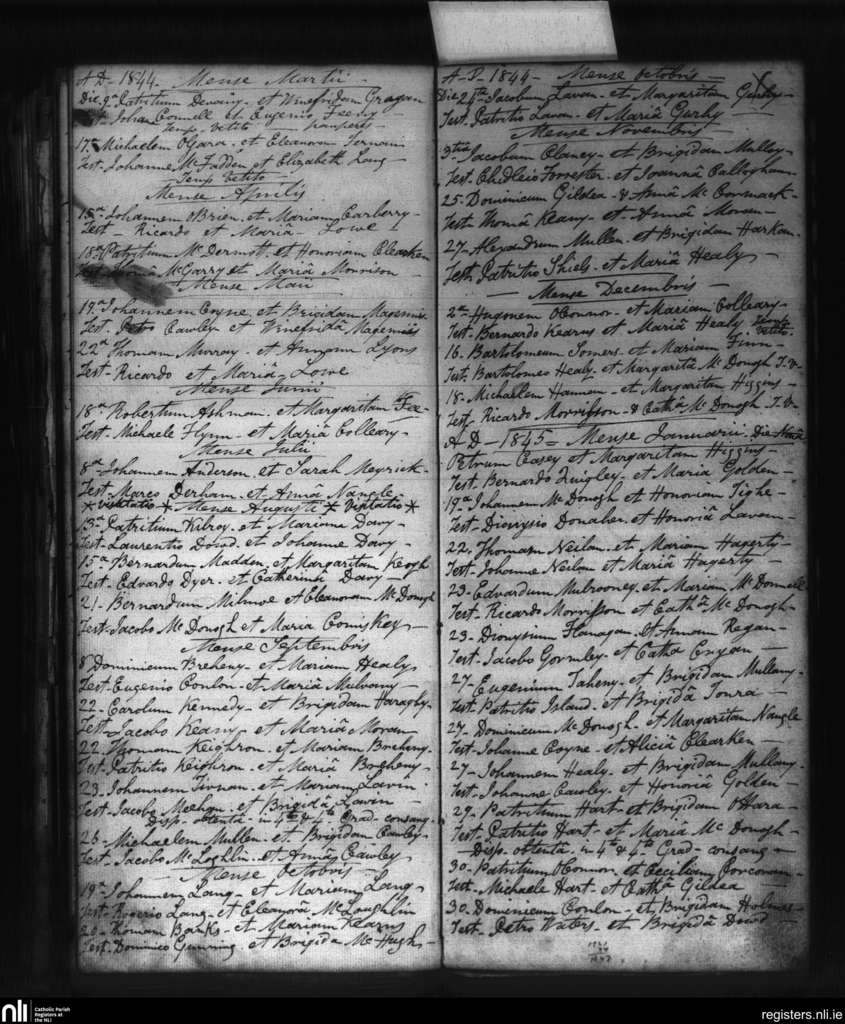 A-D- 1844. Mense Martii -
Die 9a Patritium Devany - et Winefridam Gragan
Johan Connell et Eugenio Feehy -
Temp. vetito - pauperes -
17. Michaelem OGara. et Eleanoram Ternan
Test. Johanne McFadden et Elizabeth Lang -
Temp Vetito -
Mense Aprilis
15a Johannem OBrien. et Mariam Carberry -
Test - Ricardo et Mariâ - Lowe -
18a Patritium McDermott. et Honoriam Clearken
McGarry et Mariâ Morrison
Mense Maii -
19a Johannem Coyne. et Brigidam
Test. Petro Cawley et Winefridâ
22a Thomam Murray - et Lyons
Test - Ricardo et Mariâ - Lowe
Mense Junii -
18a Robertum Ashman. et Margaritam
Test. Michaele Flynn - et Mariâ Colleary -
Mense Julii
8a Johannem Anderson. et Sarah Meyrick -
Test - Marco Derham. et Annâ Nangle
* visitatio * Mense Augusti * visitatio *
13a Patritium Kilroy. et Mariam Davy -
Test - Laurentio Dowd. et Johanne Davy -
15a Bernardum Madden. et Margaritam Keogh
Test - Edvardo Dyer. et Catherinâ Davy -
21 - Bernardum et Eleanoram McDonogh
Test - Jacobo McDonogh et Maria Comiskey -
Mense Septembris
8 Dominicum Breheny - et Mariam Healy
Test Eugenio Conlon - et Mariâ Mulvany -
22 - Carolum Kennedy - et Brigidam Haraghy -
Test - Jacobo Keany - et Mariâ Moran -
22 Thomam Keighron. et Mariam Breheny -
Test Patritio Keighron. et Mariâ Breheny -
23 - Johannem Tivnan. et Mariam Lavin -
Test - Jacobo Meehan. et Brigidâ Lavin -
Disp. obtentâ - in 4to & 4to Grad - consang -
25 - Michaelem Mullen. et Brigidam Cawley -
Test - Jacobo McLoghlin. et Annâ Cawley
Mense Octobris -
19a Johannem Lang - et Mariam Lang -
Test - Rogerio Lang - et Eleanorâ McLaughlin
20 - Thomam Banks - et Mariam Kearns
Test - Dominico et Brigidâ McHugh -
A-D- 1844 - Mense Octobris -
Die 24th Jacobum Lavan - et Margaritam
Test. Patritio Lavan - et Mariâ
Mense Novembris
3tia Jacobum Clancy - et Brigidam Mulley -
Test. Forrester. et Joannâ Callaghan
25 - Dominicum Gildea - & Annâ McCormack -
Test - Thomâ Keany - et - Annâ Moran -
27 - Alexandrum Mullen. et Brigidam Harkan -
Test. Patritio Shiels. et Mariâ Healy -
Mense Decembris -
2a - Hugonem OConnor - et Mariam Colleary -
Test - Bernardo Kearns et Mariâ Healy Temp vetito -
16. Bartolomeum Somers. et Mariam Finn -
Test. Bartolomeo Healy. et Margaritâ McDonogh T.V -
18 - Michaelem Hannan - et Margaritam Higgins -
Test. Ricardo Morrisson - & Cathâ McDonogh - T.V -
A-D- 1845 = Mense Januarii. Die
Petrum Casey et Margaritam Higgins -
Test. Bernardo Quigley. et Maria Golden -
19a Johannem McDonogh et Honoriam Tighe -
Test - Dionysio Donaher. et Honoriâ Lavan -
22. Thomam Neilan. et Mariam Hagerty -
Test - Johanne Neilan et Mariâ Hagerty -
23 - Edvardum Mulrooney. et Mariam McDonnell
Test. Ricardo Morrisson et Cathâ McDonogh -
23 - Dionysium Flanagan. et Annam Regan -
Test. Jacobo Gormley. et Cathâ -
27 - Eugenium Taheny. et Brigidam Mullany -
Test - Patritio Island. et Brigidâ
27 - Dominicum McDonogh. et Margaritam Nangle
Test - Johanne Coyne. et Aliciâ Clearken -
27 - Johannem Healy. et Brigidam Mullany -
Test - Johanne Cawley. et Honoriâ Golden -
29 - Patritium Hart. et Brigidam OHara -
Test Patritio Hart - et Mariâ McDonogh -
Disp - obtentâ - in 4to & 4to Grad - consang -
30 - Patritium OConnor. et Ceciliam Corcoran -
Test - Michaele Hart. et Cathâ Gildea
30 - Dominicum Conlon - et Brigidam Holmes -
Test - Petro Waters. et Brigidâ Dowd -
nli
Catholic Parish
Registers at
the NLI
registers.nli.ie